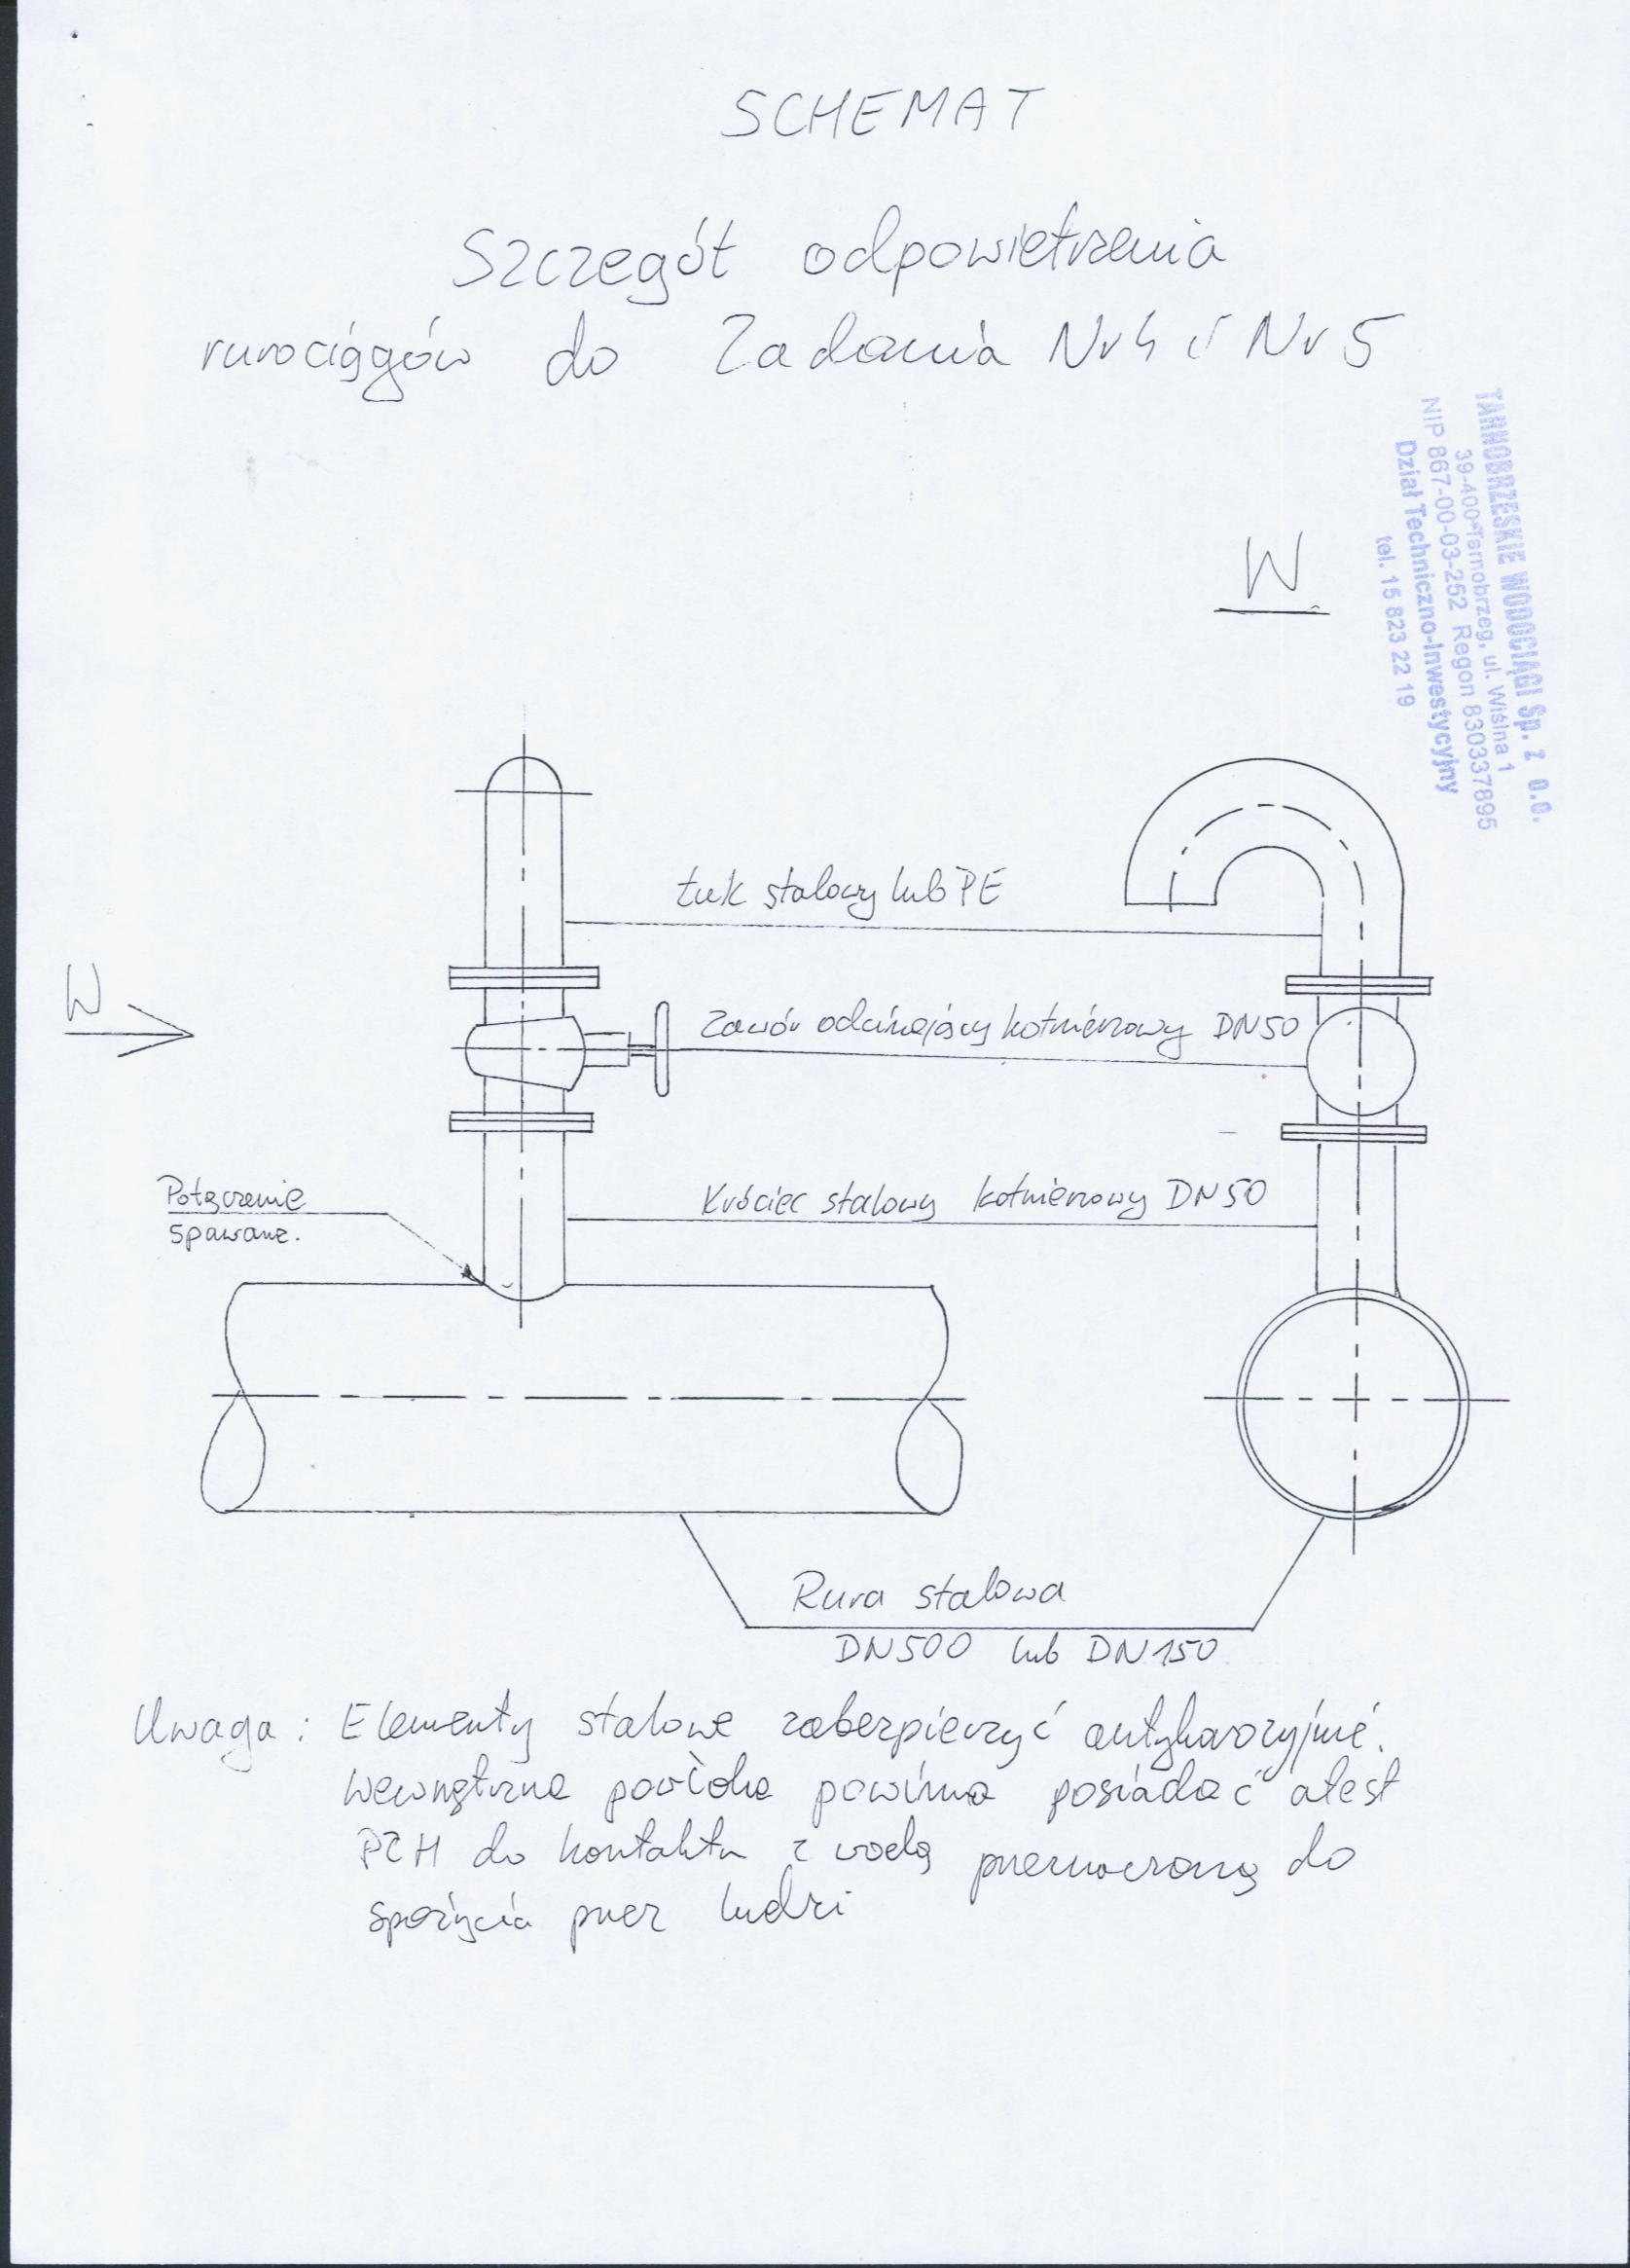 SCHEMAT
Szczegół odpowietrzenia
rurociągów do Zadania Nr 4 i Nr 5
TARNOBRZESKIE WODOCIĄGI Sp. z o.o.
39-400 Tarnobrzeg, ul. Wiślna 1
NIP 867-00-03-252 Regon 830337895
Dział Techniczno-Inwestycyjny
tel. 15 823 22 19
W
Łuk stalowy lub PE
W
Zawór odcinający kołnierzowy DN50
Połączenie
spawane.
Króciec stalowy kołnierzowy DN50
Rura stalowa
DN500 lub DN150
Uwaga: Elementy stalowe zabezpieczyć antykorozyjnie.
Wewnętrzna powłoka powinna posiadać atest
PZH do kontaktu z wodą przeznaczoną do
spożycia przez ludzi